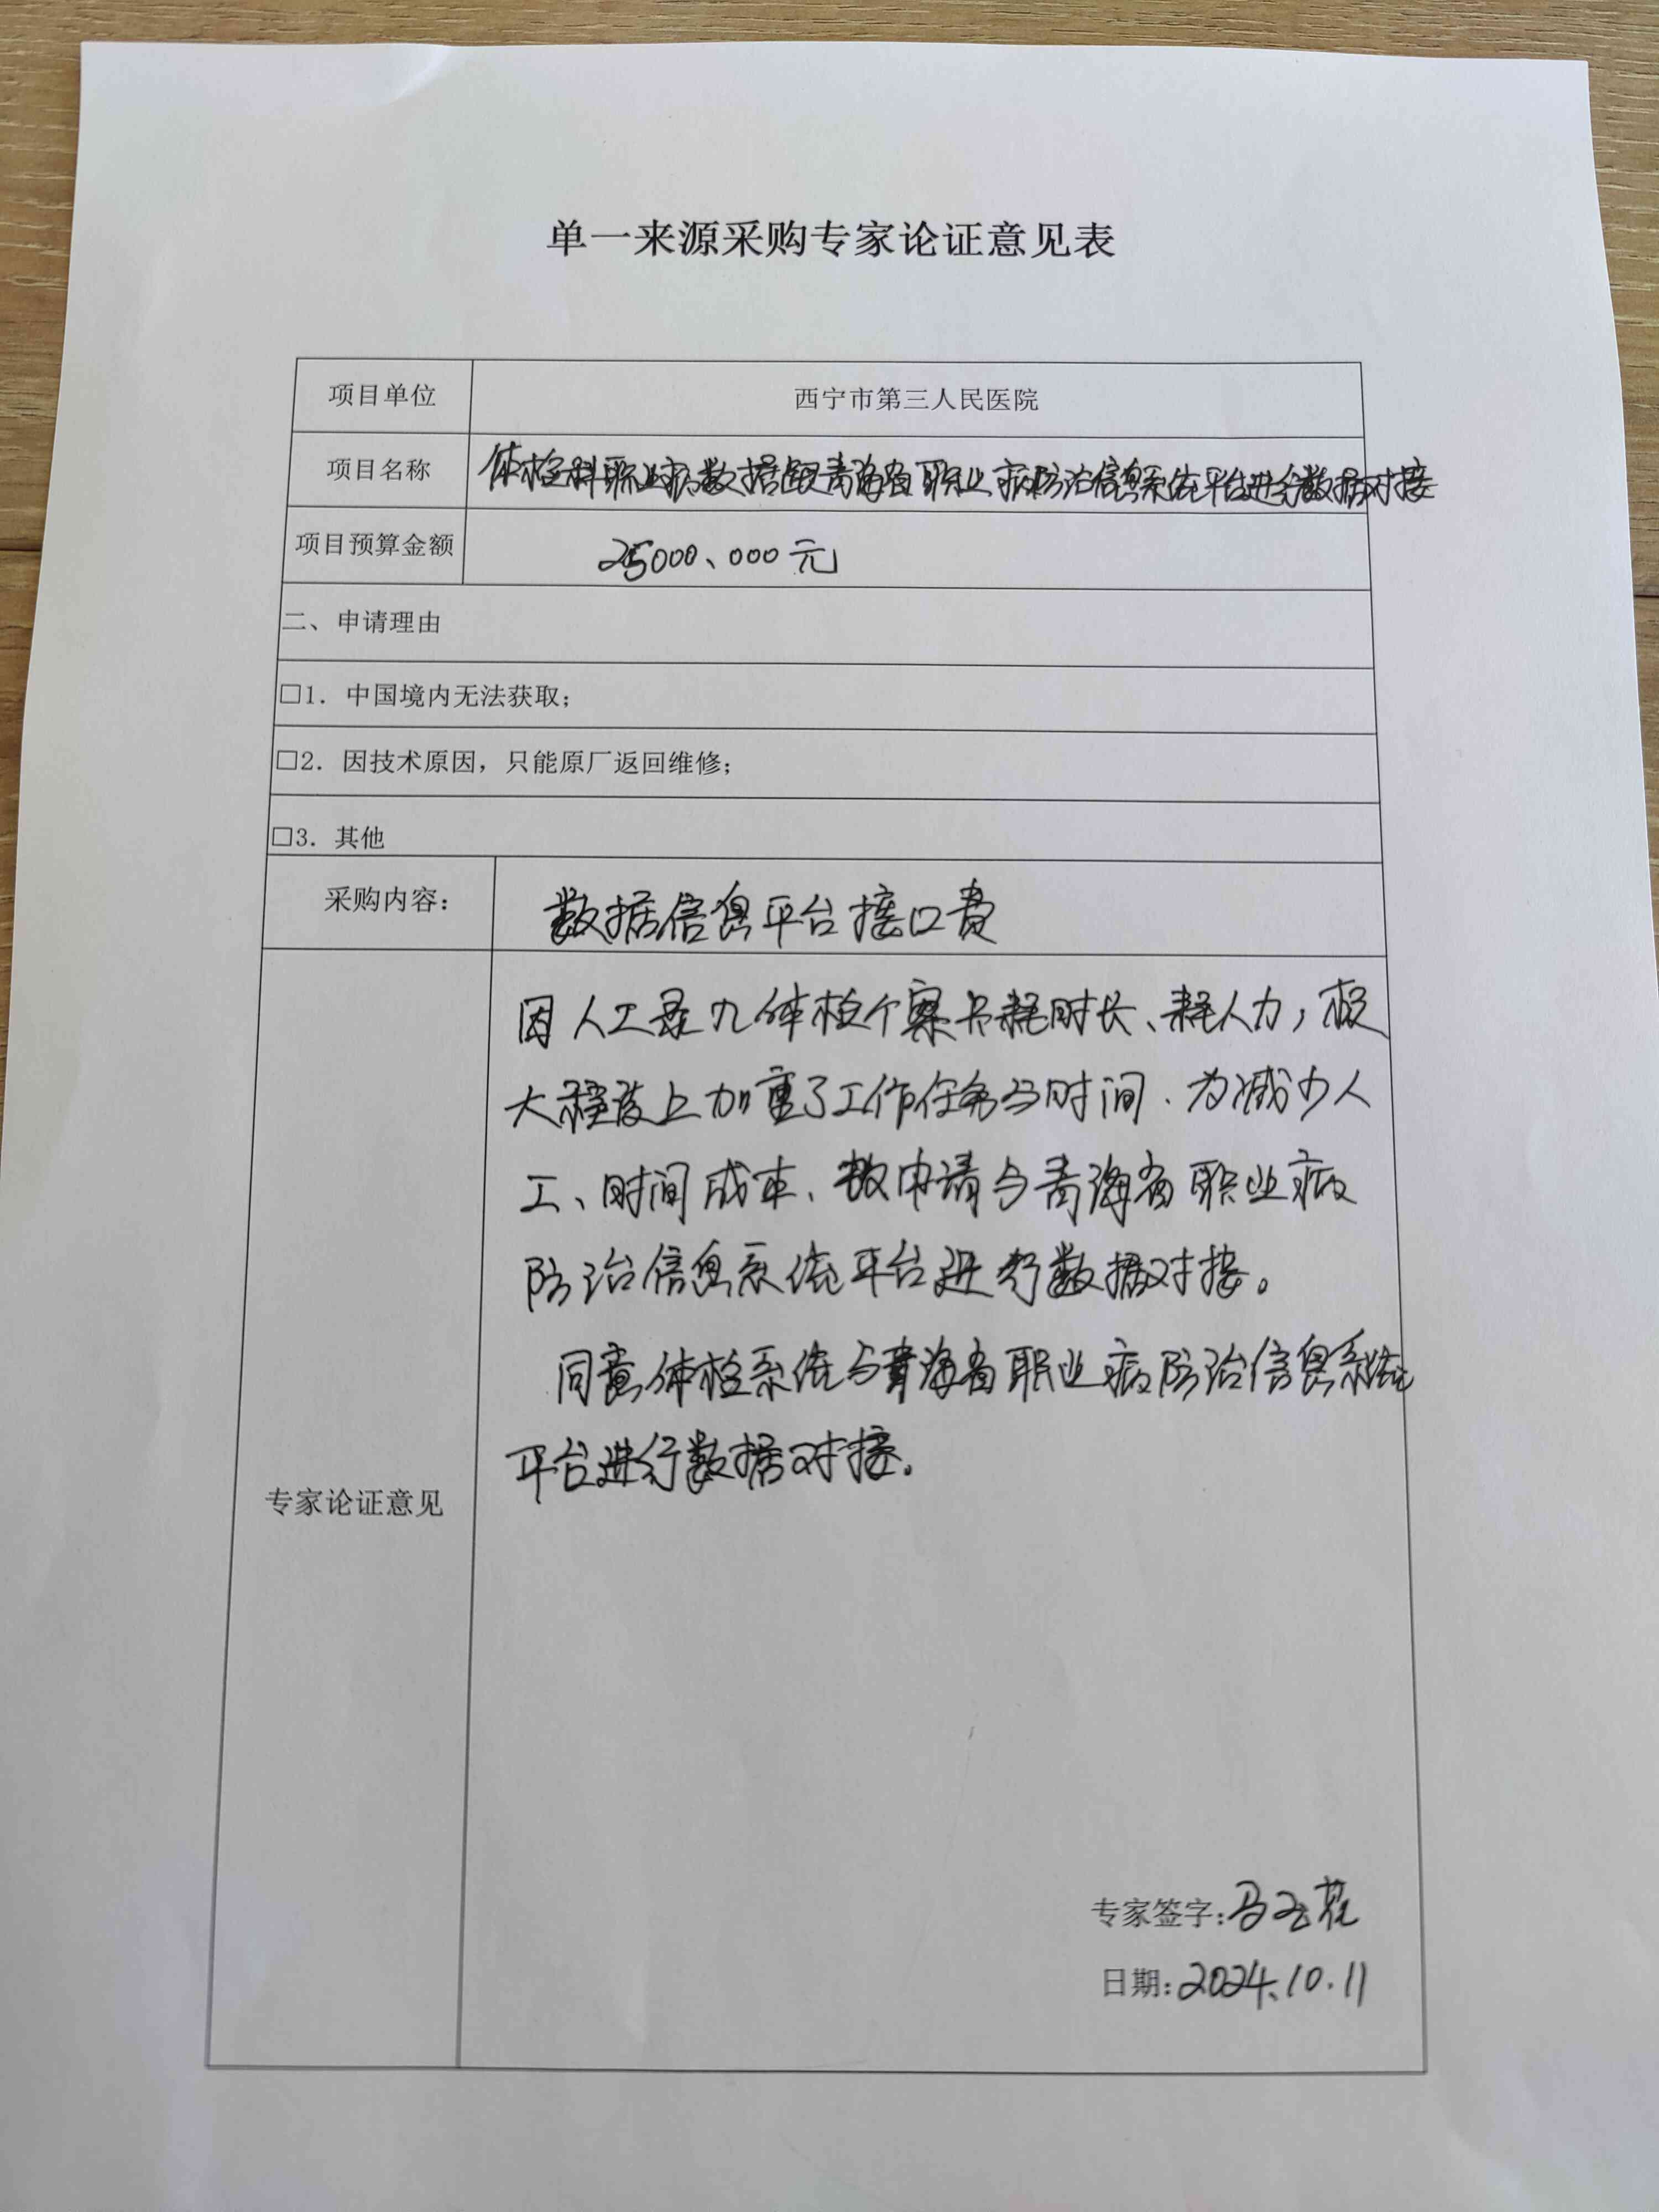 单一来源采购专家论证意见表
项目单位 西宁市第三人民医院
项目名称 体检科职业病数据与青海省职业病防治信息系统平台进行数据对接
项目预算金额 25000、000元
二、申请理由
□1. 中国境内无法获取；
□2. 因技术原因，只能原厂返回维修；
□3. 其他
采购内容： 数据信息平台接口费
因人工录入体检个案卡耗时长、耗人力，极
大程度上加重了工作任务与时间.为减少人
工、时间成本、故申请与青海省职业病
防治信息系统平台进行数据对接。
同意体检系统与青海省职业病防治信息系统
平台进行数据对接。
专家论证意见
专家签字：马玉花
日期：2024.10.11